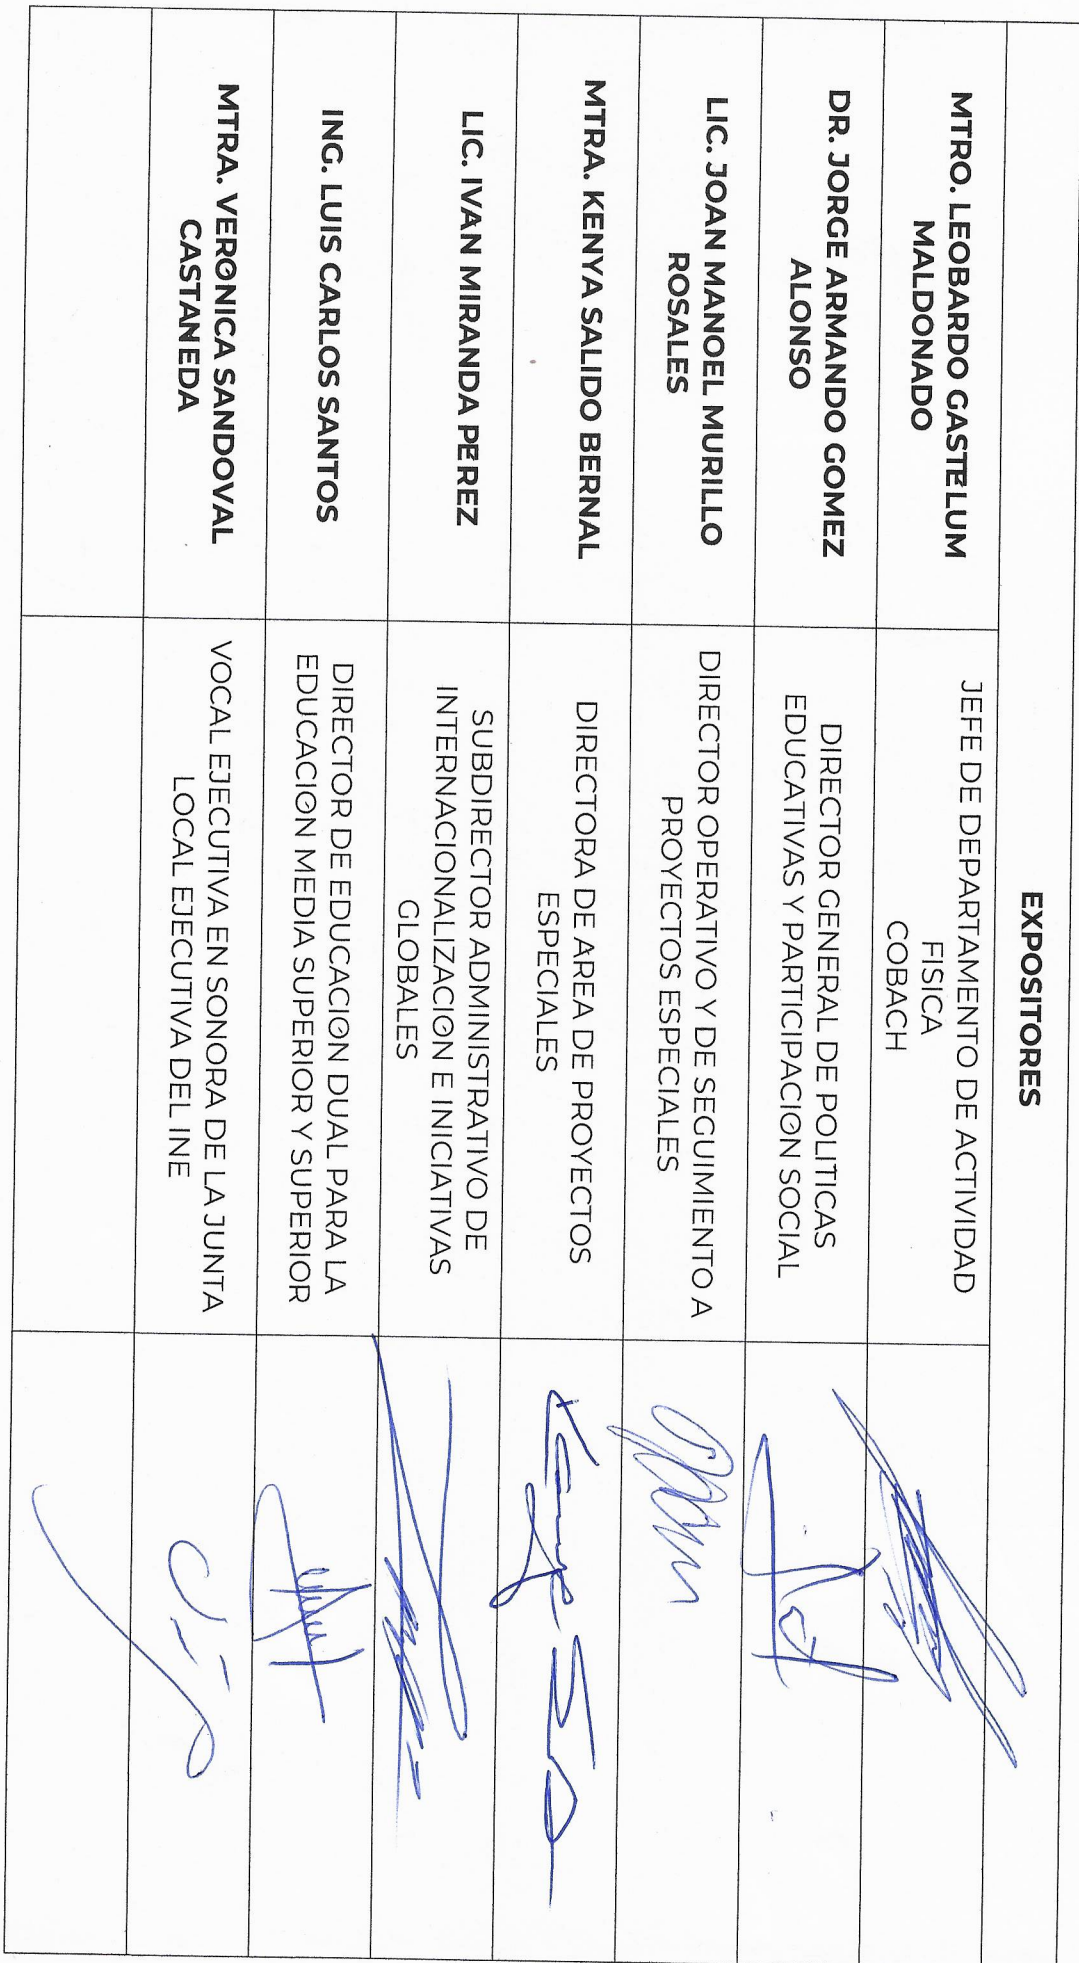 EXPOSITORES
MTRO. LEOBARDO GASTELUM
MALDONADO
JEFE DE DEPARTAMENTO DE ACTIVIDAD
FISICA
COBACH
DR. JORGE ARMANDO GOMEZ
ALONSO
DIRECTOR GENERAL DE POLITICAS
EDUCATIVAS Y PARTICIPACION SOCIAL
LIC. JOAN MANOEL MURILLO
ROSALES
DIRECTOR OPERATIVO Y DE SEGUIMIENTO A
PROYECTOS ESPECIALES
MTRA. KENYA SALIDO BERNAL
DIRECTORA DE AREA DE PROYECTOS
ESPECIALES
Kenya
LIC. IVAN MIRANDA PEREZ
SUBDIRECTOR ADMINISTRATIVO DE
INTERNACIONALIZACION E INICIATIVAS
GLOBALES
ING. LUIS CARLOS SANTOS
DIRECTOR DE EDUCACION DUAL PARA LA
EDUCACION MEDIA SUPERIOR Y SUPERIOR
MTRA. VERONICA SANDOVAL
CASTANEDA
VOCAL EJECUTIVA EN SONORA DE LA JUNTA
LOCAL EJECUTIVA DEL INE